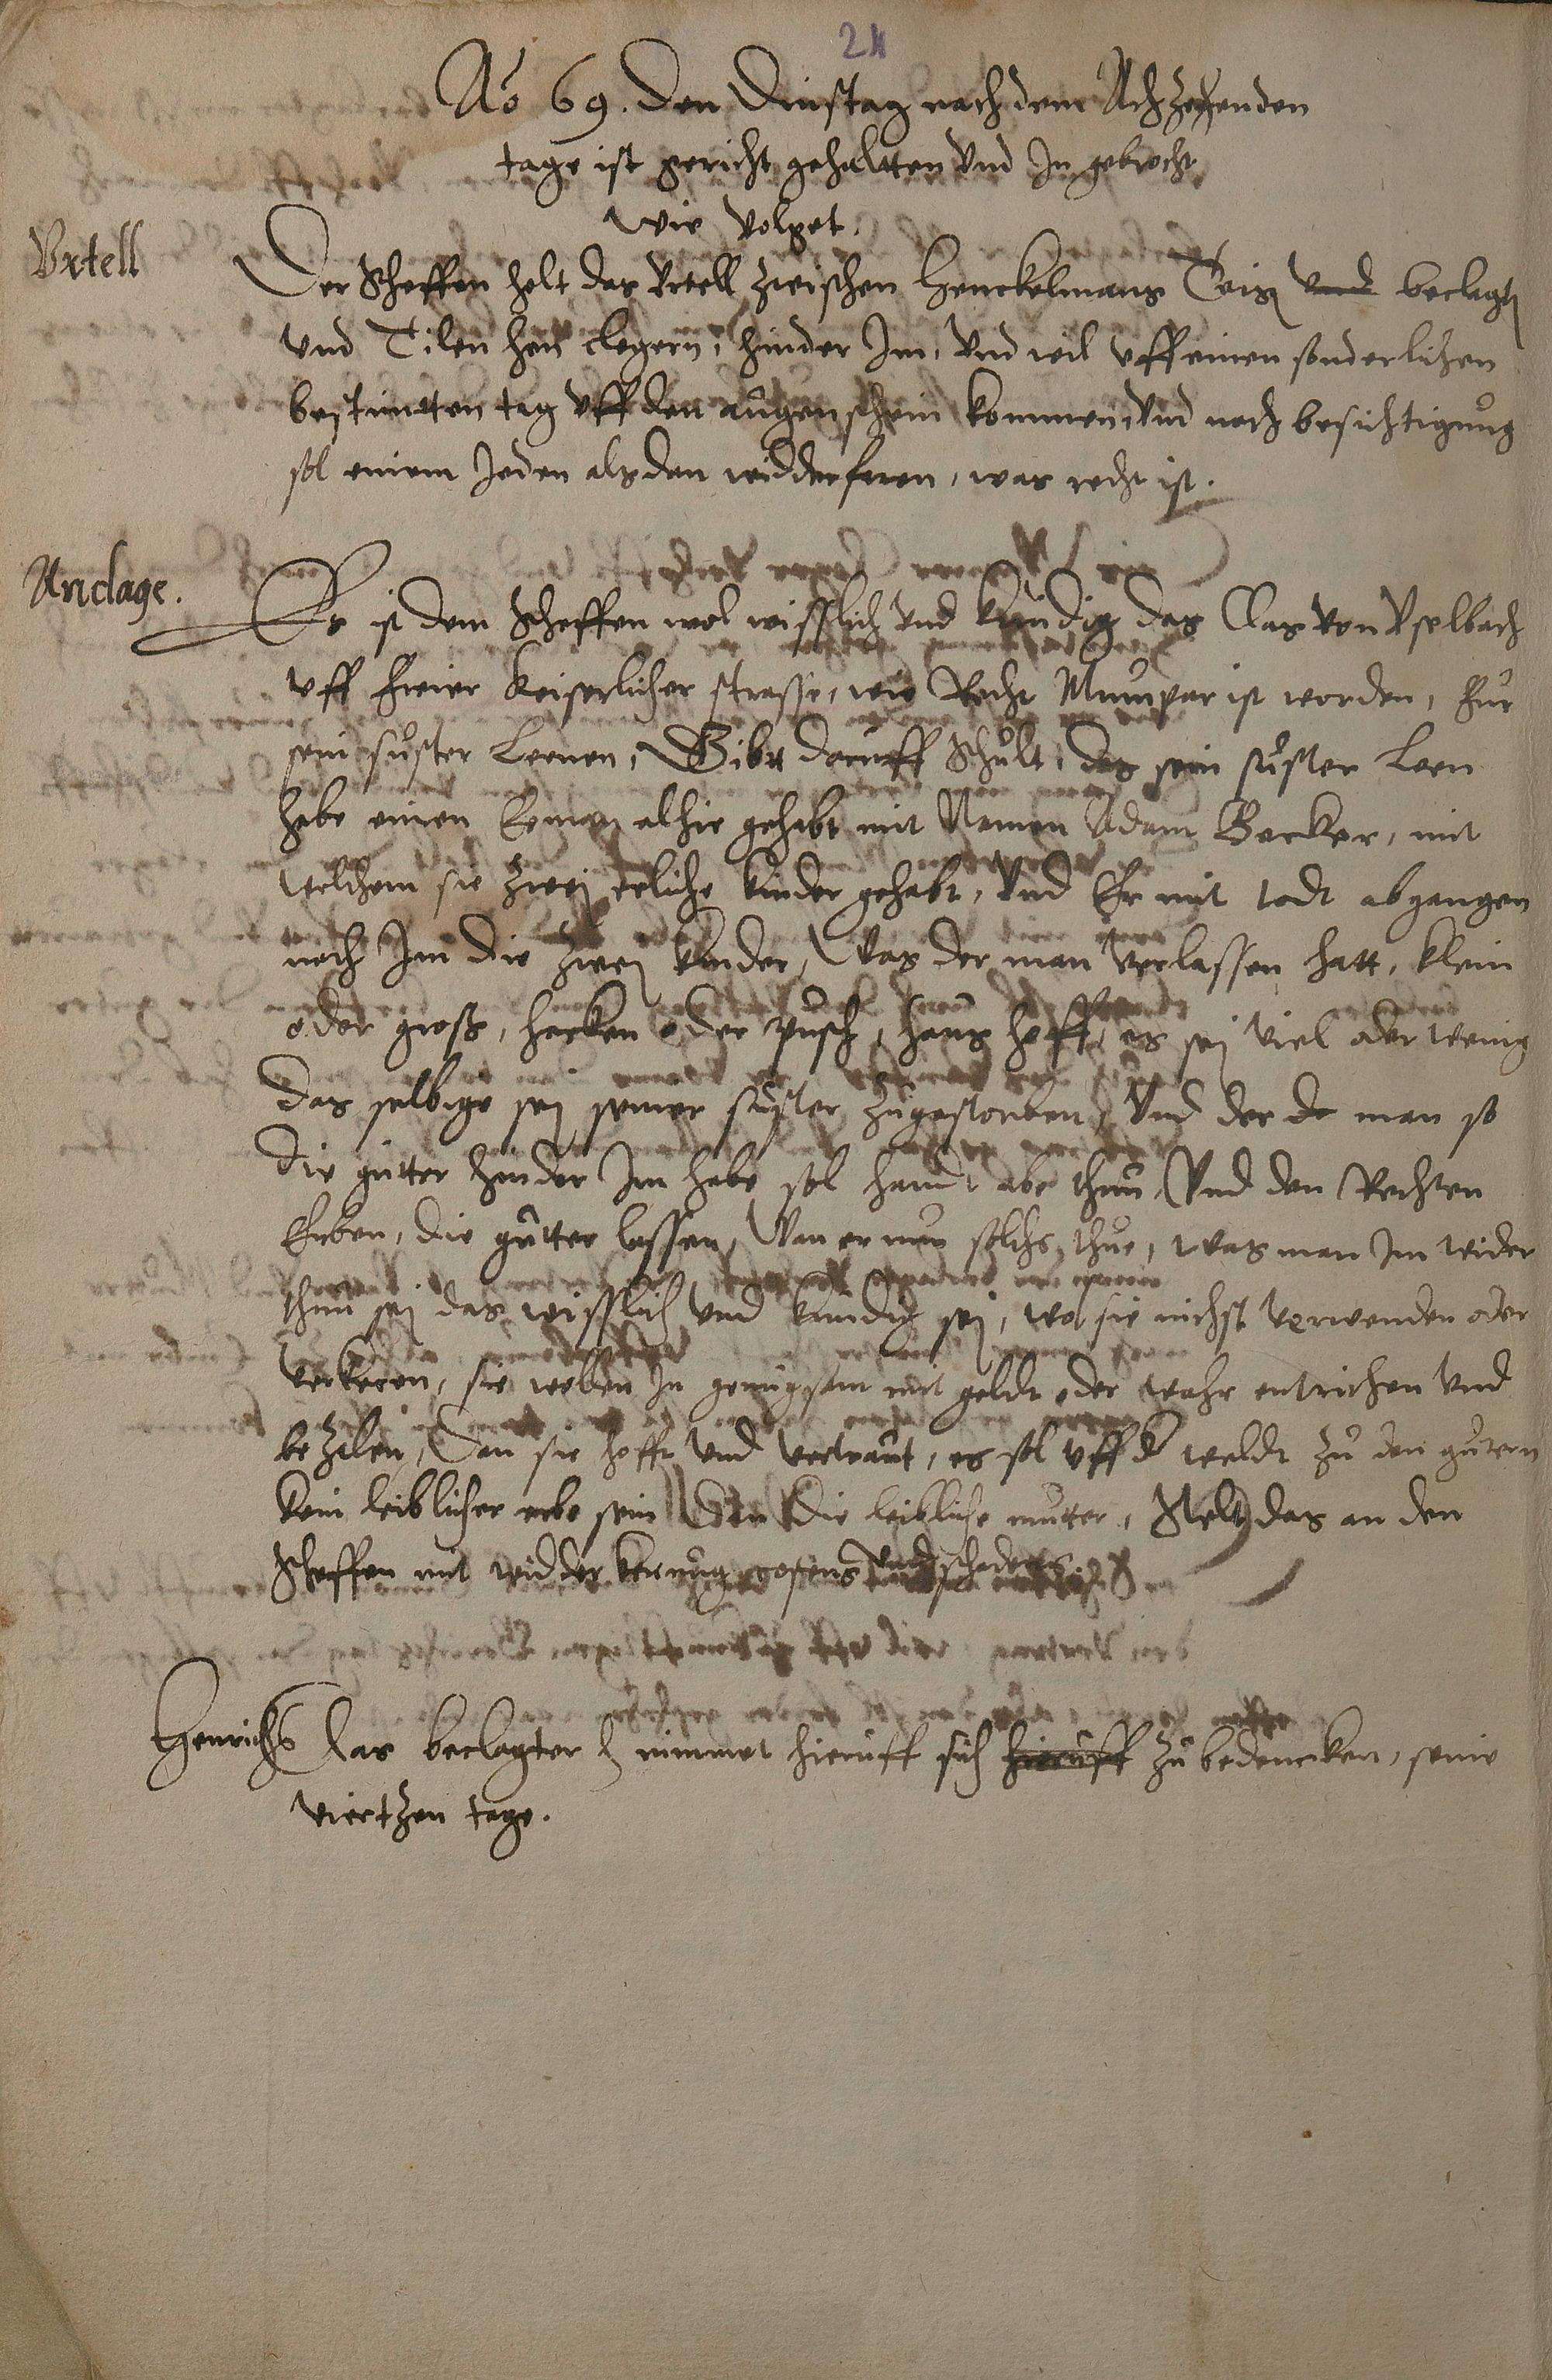 24
Ao 69. den Dinstag nach dem Achzehenden
tage ist gericht gehaltten und In gebracht
wie volget.
Urtell
Der Scheffen helt das Urtell zwischen Henckelmans Teis und beclagt
und Tilen hen clegern, hinder Im, und wil uff einen sonderlichen
bestimtten tag uff den augenschein kommen, und nach besichtigung
sol einem Jeden alsdan widderfaren, was recht ist.
Anclage.
Es ist dem Scheffen wol wisslich und kundig das Clas von Uselbach
uff freier keiserlicher strasse, wie Recht Mumpar ist worden, fur
sein suster Leenen, Gibtt daruff Schult, das sein suster Leen
habe einen Eeman alhie gehabt mit Namen Adam Becker, mit
welchem sie zwei eeliche kinder gehabt, und Er mit todt abgangen
nach Im die zwei kinder, Was der man verlassen hatt, klein
oder gross, hecken oder pusch, haus hoff, es sei viel oder wenig
das selbige sei seiner suster zugestorben, und der de man so
die gutter hinder Im habe sol handt abe thun, und den Rechten
Erben, die gutter lassen, Wan er nun solchs thue, was man Im wider
thun sei das wisslich und kundig sei, wo sie nichst verwenden oder
verkeren, sie wollen In genugsam mit geldt oder wahr entrichen und
bezalen, Dan sie hofft und vertraut, es sol uff d weldt zu den gutern
kein leiblicher erbe sein Dan die leibliche mutter, Stelt das an den
Scheffen mit widderkerung costens und schadens
Henrichs Clas beclagter nimmet hieruff sich hieruff zu bedencken, seine
viertzen tage.